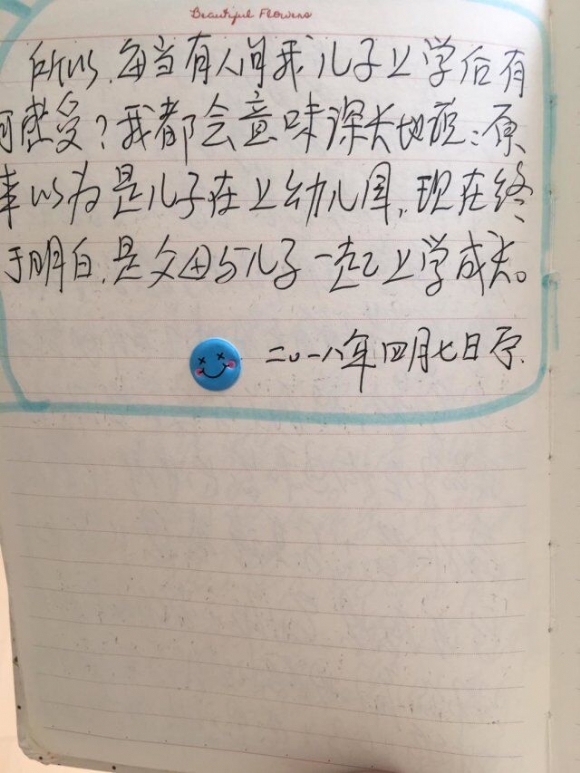 Beautiful Flowers
所以,每当有人问我儿子上学后有
何感受?我都会意味深长地说:原
来以为是儿子在上幼儿园,现在终
于明白,是父母与儿子一起上学成长。
二〇一八年四月七日